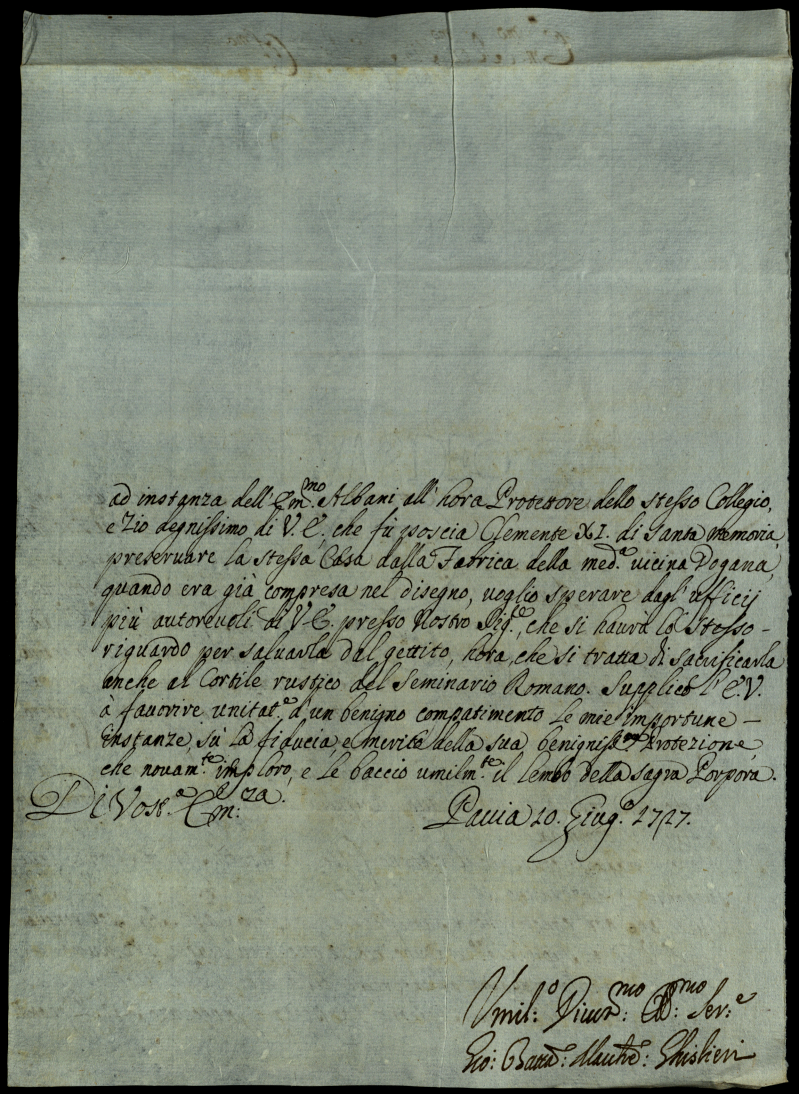 ad instanza dell'Em.mo Albani all'hora Protettore dello stesso Collegio,
e Zio degnissimo di V. E. che fù poscia Clemente XI. di Santa memoria,
preservare la stessa Casa dalla Fabrica della med.a vicina Dogana,
quando era già compresa nel disegno, voglio sperare dagl'ufficij
più autorevoli di V. E. presso Nostro Sig.e, che si haurà lo stesso -
riguardo per saluarla dal gettito, hora, che si tratta di sacrificarla
anche al Cortile rustico del Seminario Romano. Supplico l'E. V.
a favorire unitat.e d'un benigno compatimento le mie importune -
instanze, sù la fiducia, e merito della sua benignis.ma Protezione
che novam.te imploro, e le baccio umilm.te il lembo della sagra Porpora.
Di Vost.a Em.za
Pavia 10. Giug.o 1727.
Vmil.o Diuot.mo Obb.mo Ser.e
Gio: Batt.a Ghislieri